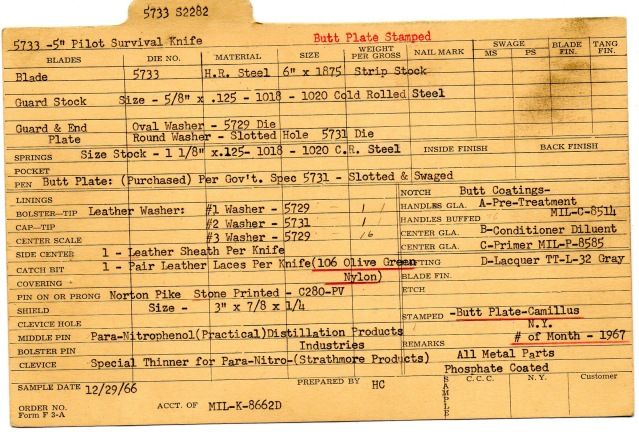 5733 S2282
5733 -5" Pilot Survival Knife Butt Plate Stamped
BLADES DIE NO. MATERIAL SIZE WEIGHT PER GROSS NAIL MARK SWAGE MS PS BLADE FIN. TANG FIN.
Blade 5733 H.R. Steel 6" x 1875 Strip Stock
Guard Stock Size - 5/8" x .125 - 1018 - 1020 Cold Rolled Steel
Guard & End Oval Washer - 5729 Die
Plate Round Washer - Slotted Hole 5731 Die
SPRINGS Size Stock - 1 1/8" x.125- 1018 - 1020 C.R. Steel INSIDE FINISH BACK FINISH
POCKET
PEN Butt Plate: (Purchased) Per Gov't. Spec 5731 - Slotted & Swaged
LININGS NOTCH Butt Coatings-
BOLSTER-TIP Leather Washer: #1 Washer - 5729 1 HANDLES GLA. A-Pre-Treatment
CAP-TIP #2 Washer - 5731 1 HANDLES BUFFED MIL-C-8514
CENTER SCALE #3 Washer - 5729 16 CENTER GLA. B-Conditioner Diluent
SIDE CENTER 1 - Leather Sheath Per Knife CENTER GLA. C-Primer MIL-P-8585
CATCH BIT 1 - Pair Leather Laces Per Knife(106 Olive Green D-Lacquer TT-L-32 Gray
COVERING Nylon) BLADE FIN.
PIN ON OR PRONG Norton Pike Stone Printed - C280-PV ETCH
SHIELD Size - 3" x 7/8 x 1/4
CLEVICE HOLE STAMPED -Butt Plate-Camillus
MIDDLE PIN Para-Nitrophenol(Practical)Distillation Products N.Y.
BOLSTER PIN Industries REMARKS # of Month - 1967
CLEVICE Special Thinner for Para-Nitro-(Strathmore Products) All Metal Parts
Phosphate Coated
SAMPLE DATE 12/29/66 PREPARED BY HC SAMPLE C.C.C. N.Y. Customer
ORDER NO. ACCT. OF MIL-K-8662D
Form F 3-A